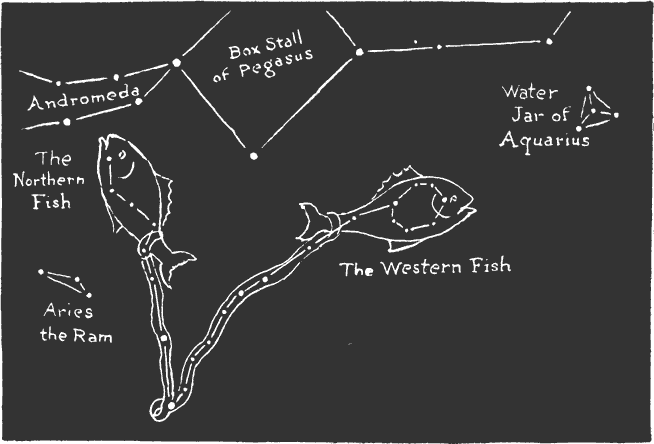 Box Stall
of Pegasus
Andromeda
Water
Jar of
Aquarius
The
Northern
Fish
The Western Fish
Aries
the Ram